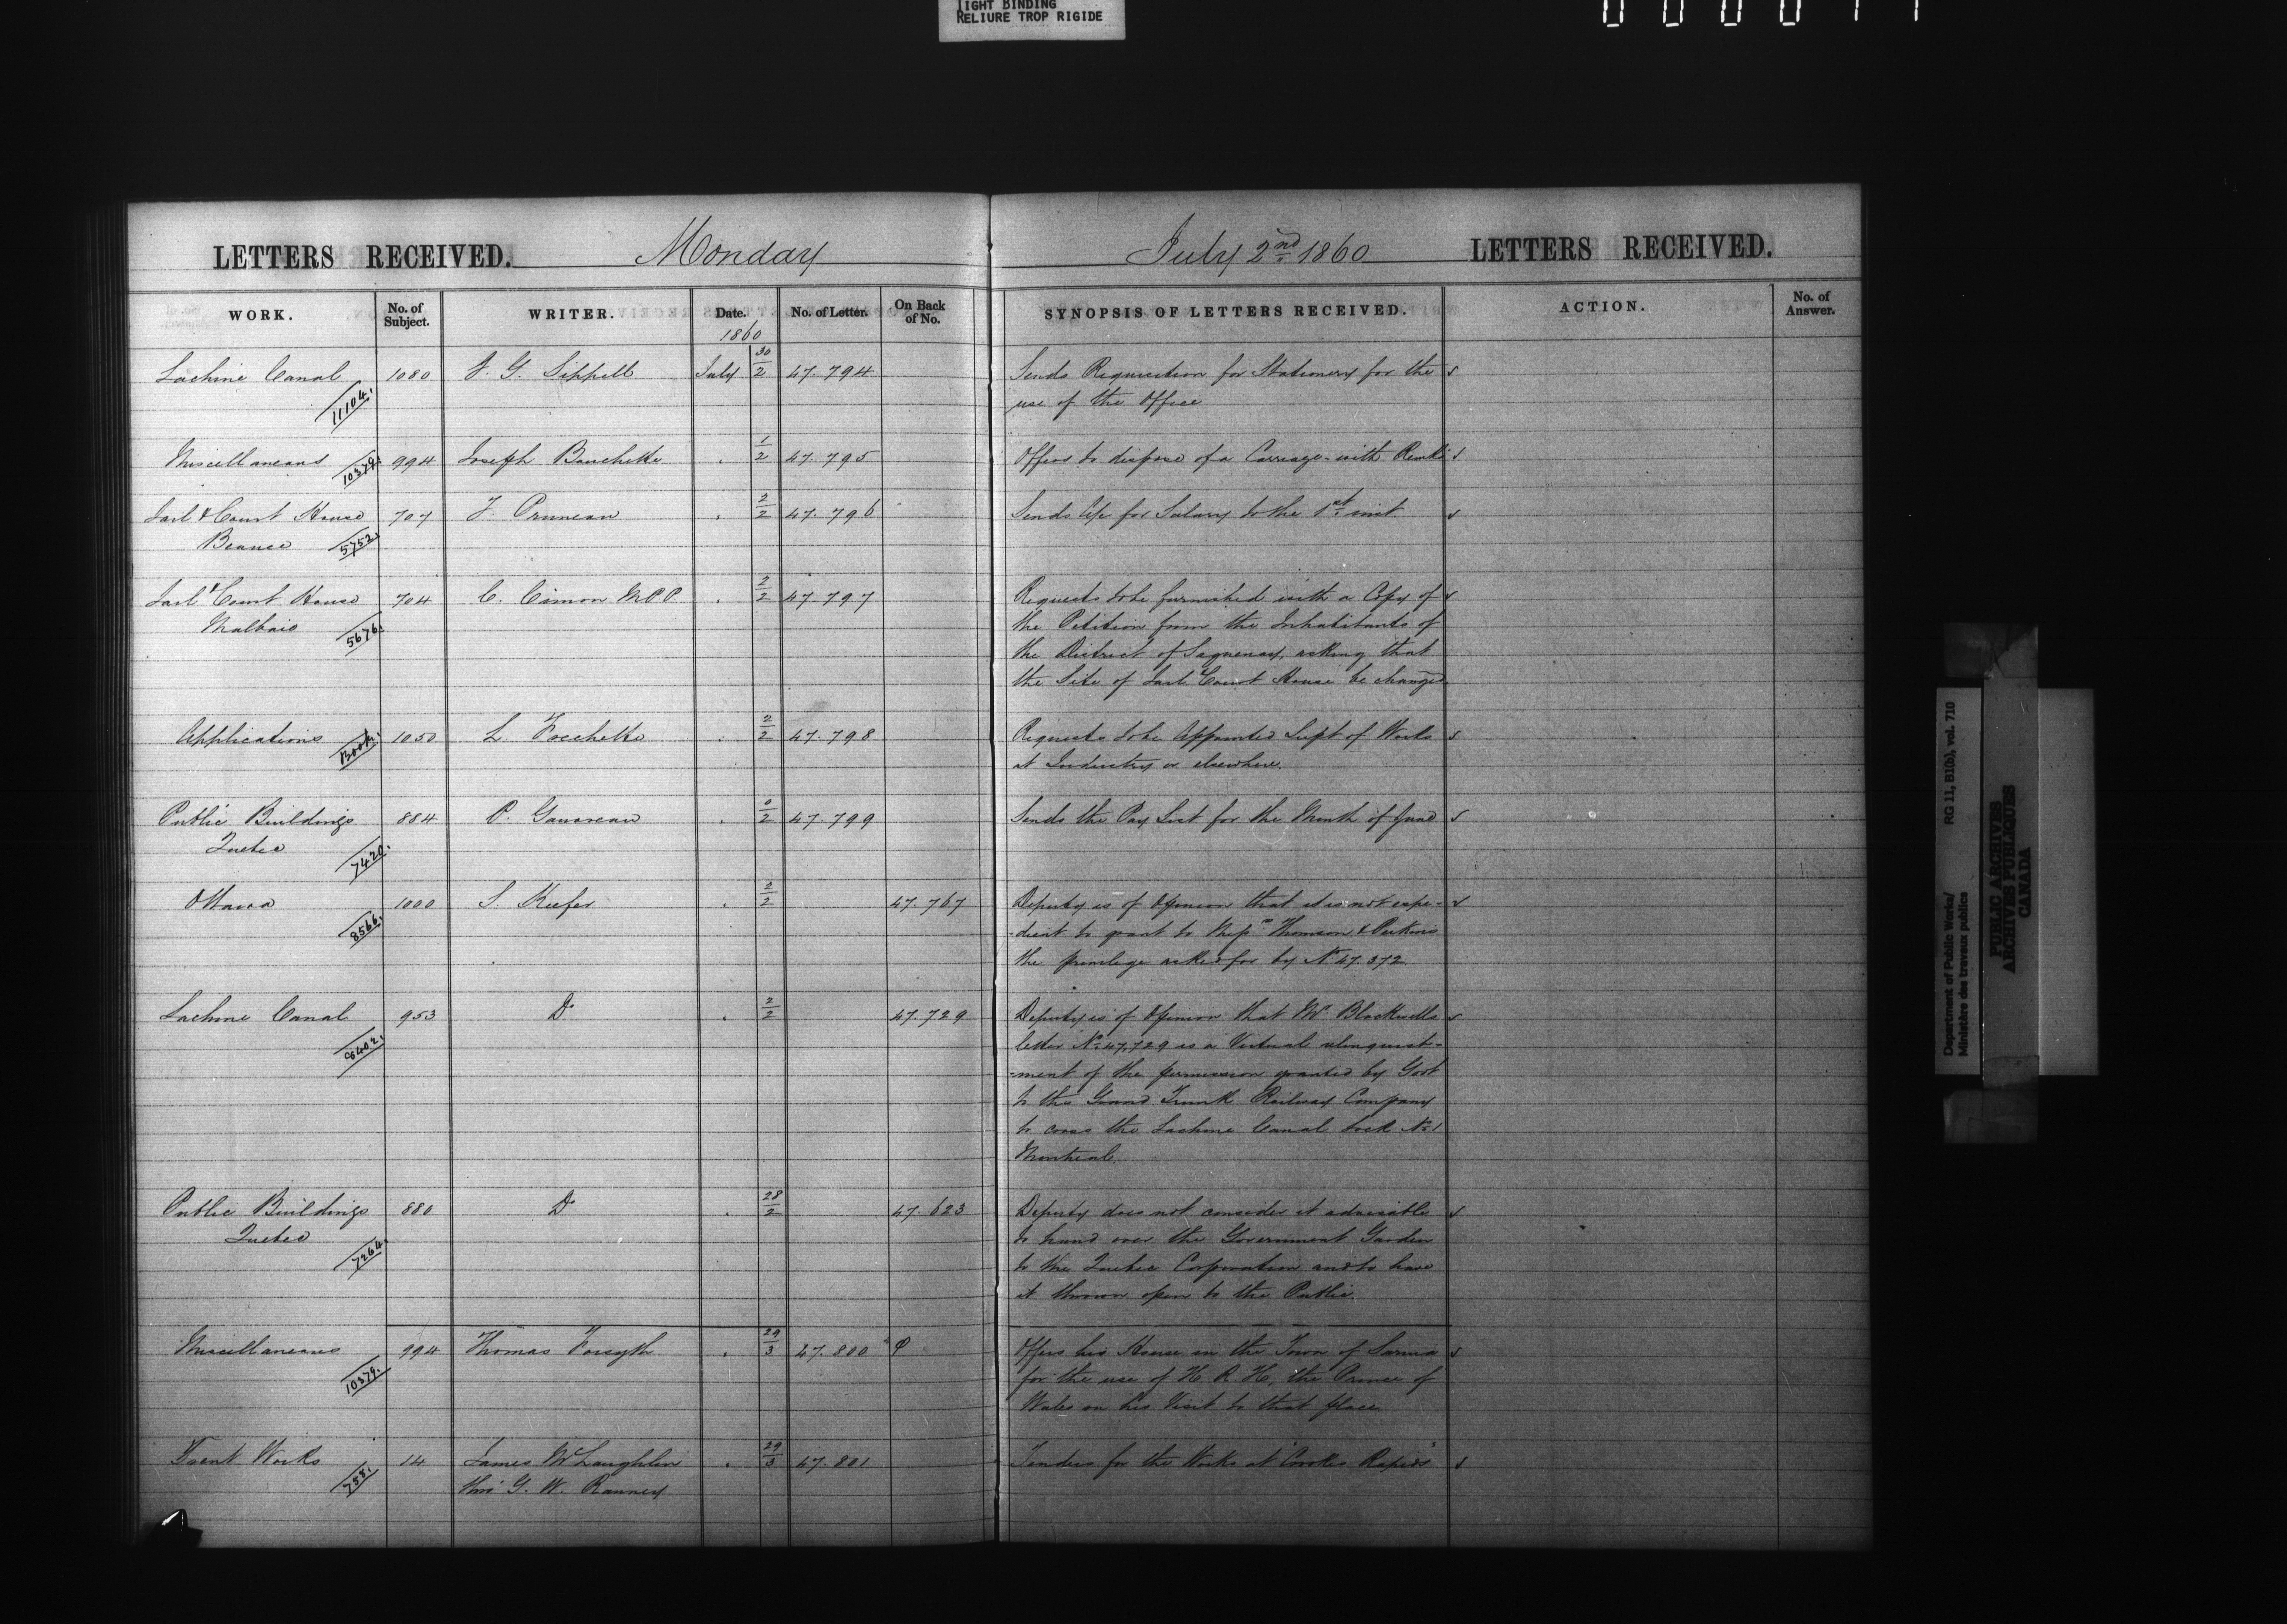 TIGHT BINDING
RELIURE TROP RIGIDE
LETTERS RECEIVED. Monday July 2nd 1860 LETTERS RECEIVED.
WORK. No. of Subject. WRITER. Date. No. of Letter. On Back of No. SYNOPSIS OF LETTERS RECEIVED. ACTION. No. of Answer.
1860
Lachine Canal 1080 J. G. Sippell July 30/2 47.794 Sends Requisition for Stationery for the
11104. use of the Office
Miscellaneous 10379. 994 Joseph Bouchette 1/2 47.795 Offers to dispose of a Carriage with
Jail & Court House 707 J. Pruneau 2/2 47.796 Sends for Salary to the 1st inst.
Beauce 5752.
Jail & Court House 704 C. Cimon M.P.P. 2/2 47.797 Requests to be furnished with a Copy of
Malbaie 5676. the Petition from the Inhabitants of
the District of Saguenay, asking that
the Site of Jail & Court House be changed
Applications Book. 1050 L. Frechette 2/2 47.798 Requests to be Appointed Supt of Works
at Industry or elsewhere.
Public Buildings 884 P. Gauvreau 0/2 47.799 Sends the Pay List for the Month of June
Quebec 7420.
Ottawa 1000 S. Keefer 2/2 47.767 Deputy is of Opinion that it is not expe-
8566. -dient to grant to Messrs Thomson & Perkins
the privilege asked for by No 47.372
Lachine Canal 953 Do 2/2 47.729 Deputy is of Opinion that Mr Blackwells
letter No 47,729 is a Virtual relinquish-
-ment of the permission granted by Govt
to the Grand Trunk Railway Company
to cross the Lachine Canal Lock No 1
Montreal.
Public Buildings 880 Do 28/2 47.623 Deputy does not consider it advisable
Quebec to hand over the Government Garden
7264. to the Quebec Corporation and to have
it thrown open to the Public.
Miscellaneous 994 Thomas Forsyth 29/3 47.800 Offers his House in the Town of Sarnia
10379. for the use of H. R. H. the Prince of
Wales on his Visit to that place.
Trent Works 14 James McLaughlin 29/3 47.801 Tenders for the Works at "Crookes Rapids"
758. thro' G. W. Ranney
Department of Public Works/
Ministère des travaux publics
RG 11, B1(b), vol. 710
PUBLIC ARCHIVES
ARCHIVES PUBLIQUES
CANADA